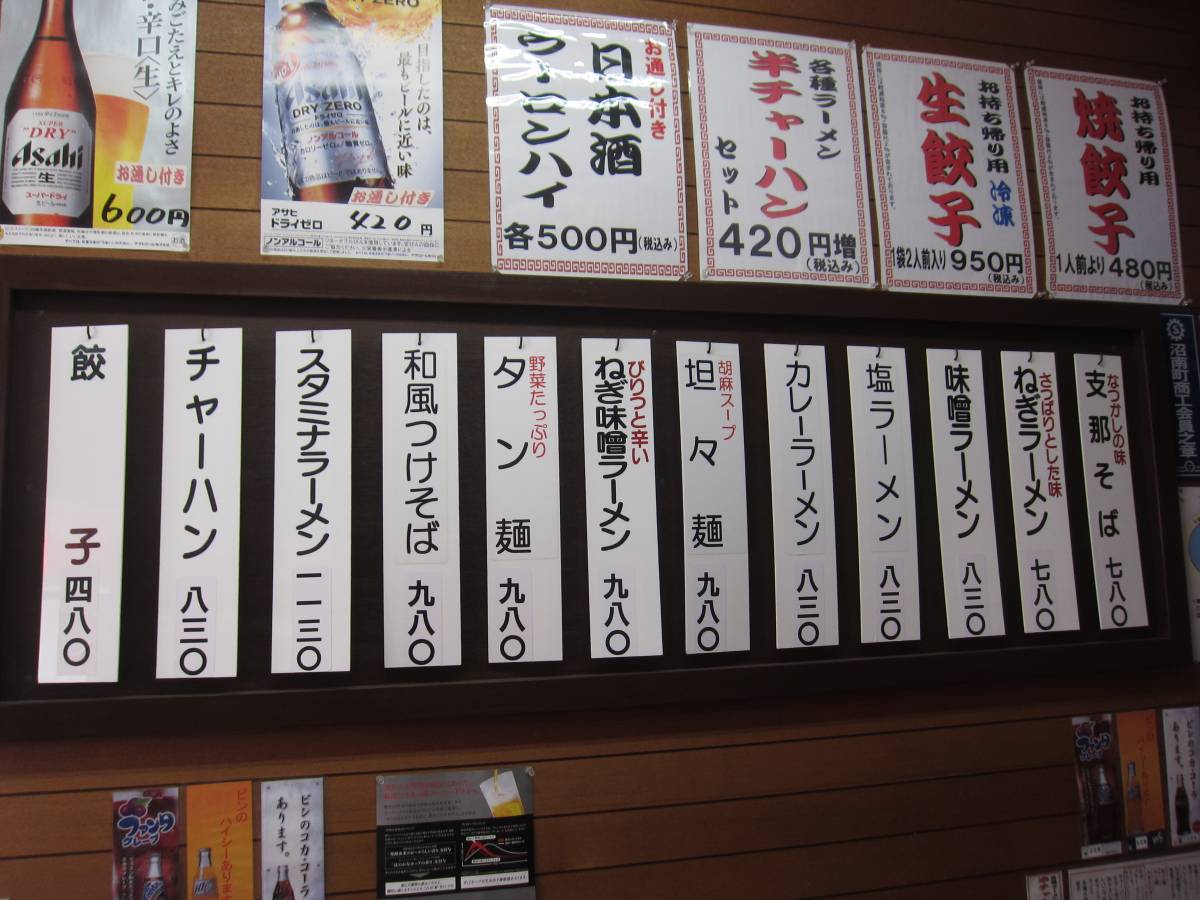 みごたえとキレのよさ
・辛口〈生〉
SUPER
"DRY"
Asahi
生
スーパードライ
お通し付き
600円
DRY ZERO
目指したのは、
最もビールに近い味
Asahi
DRY ZERO
ドライゼロ
ノンアルコール
お通し付き
アサヒ
ドライゼロ
420円
ノンアルコール
お通し付き
日本酒
ウーロンハイ
各500円(税込み)
各種ラーメン
半チャーハン
セット
420円増
(税込み)
お持ち帰り用
生餃子
冷凍
1袋2人前入り 950円
(税込み)
お持ち帰り用
焼餃子
1人前より 480円
(税込み)
沼南町商工会員之章
なつかしの味
支那そば 七八〇
さっぱりとした味
ねぎラーメン 七八〇
味噌ラーメン 八三〇
塩ラーメン 八三〇
カレーラーメン 八三〇
胡麻スープ
坦々麺 九八〇
ぴりっと辛い
ねぎ味噌ラーメン 九八〇
野菜たっぷり
タン麺 九八〇
和風つけそば 九八〇
スタミナラーメン 一一三〇
チャーハン 八三〇
餃子 四八〇
ファンタ
グレープ
ビンの
ハイシーあります
ビンのコカ・コーラ
あります。
ファンタ
ビンのコカ
あります。